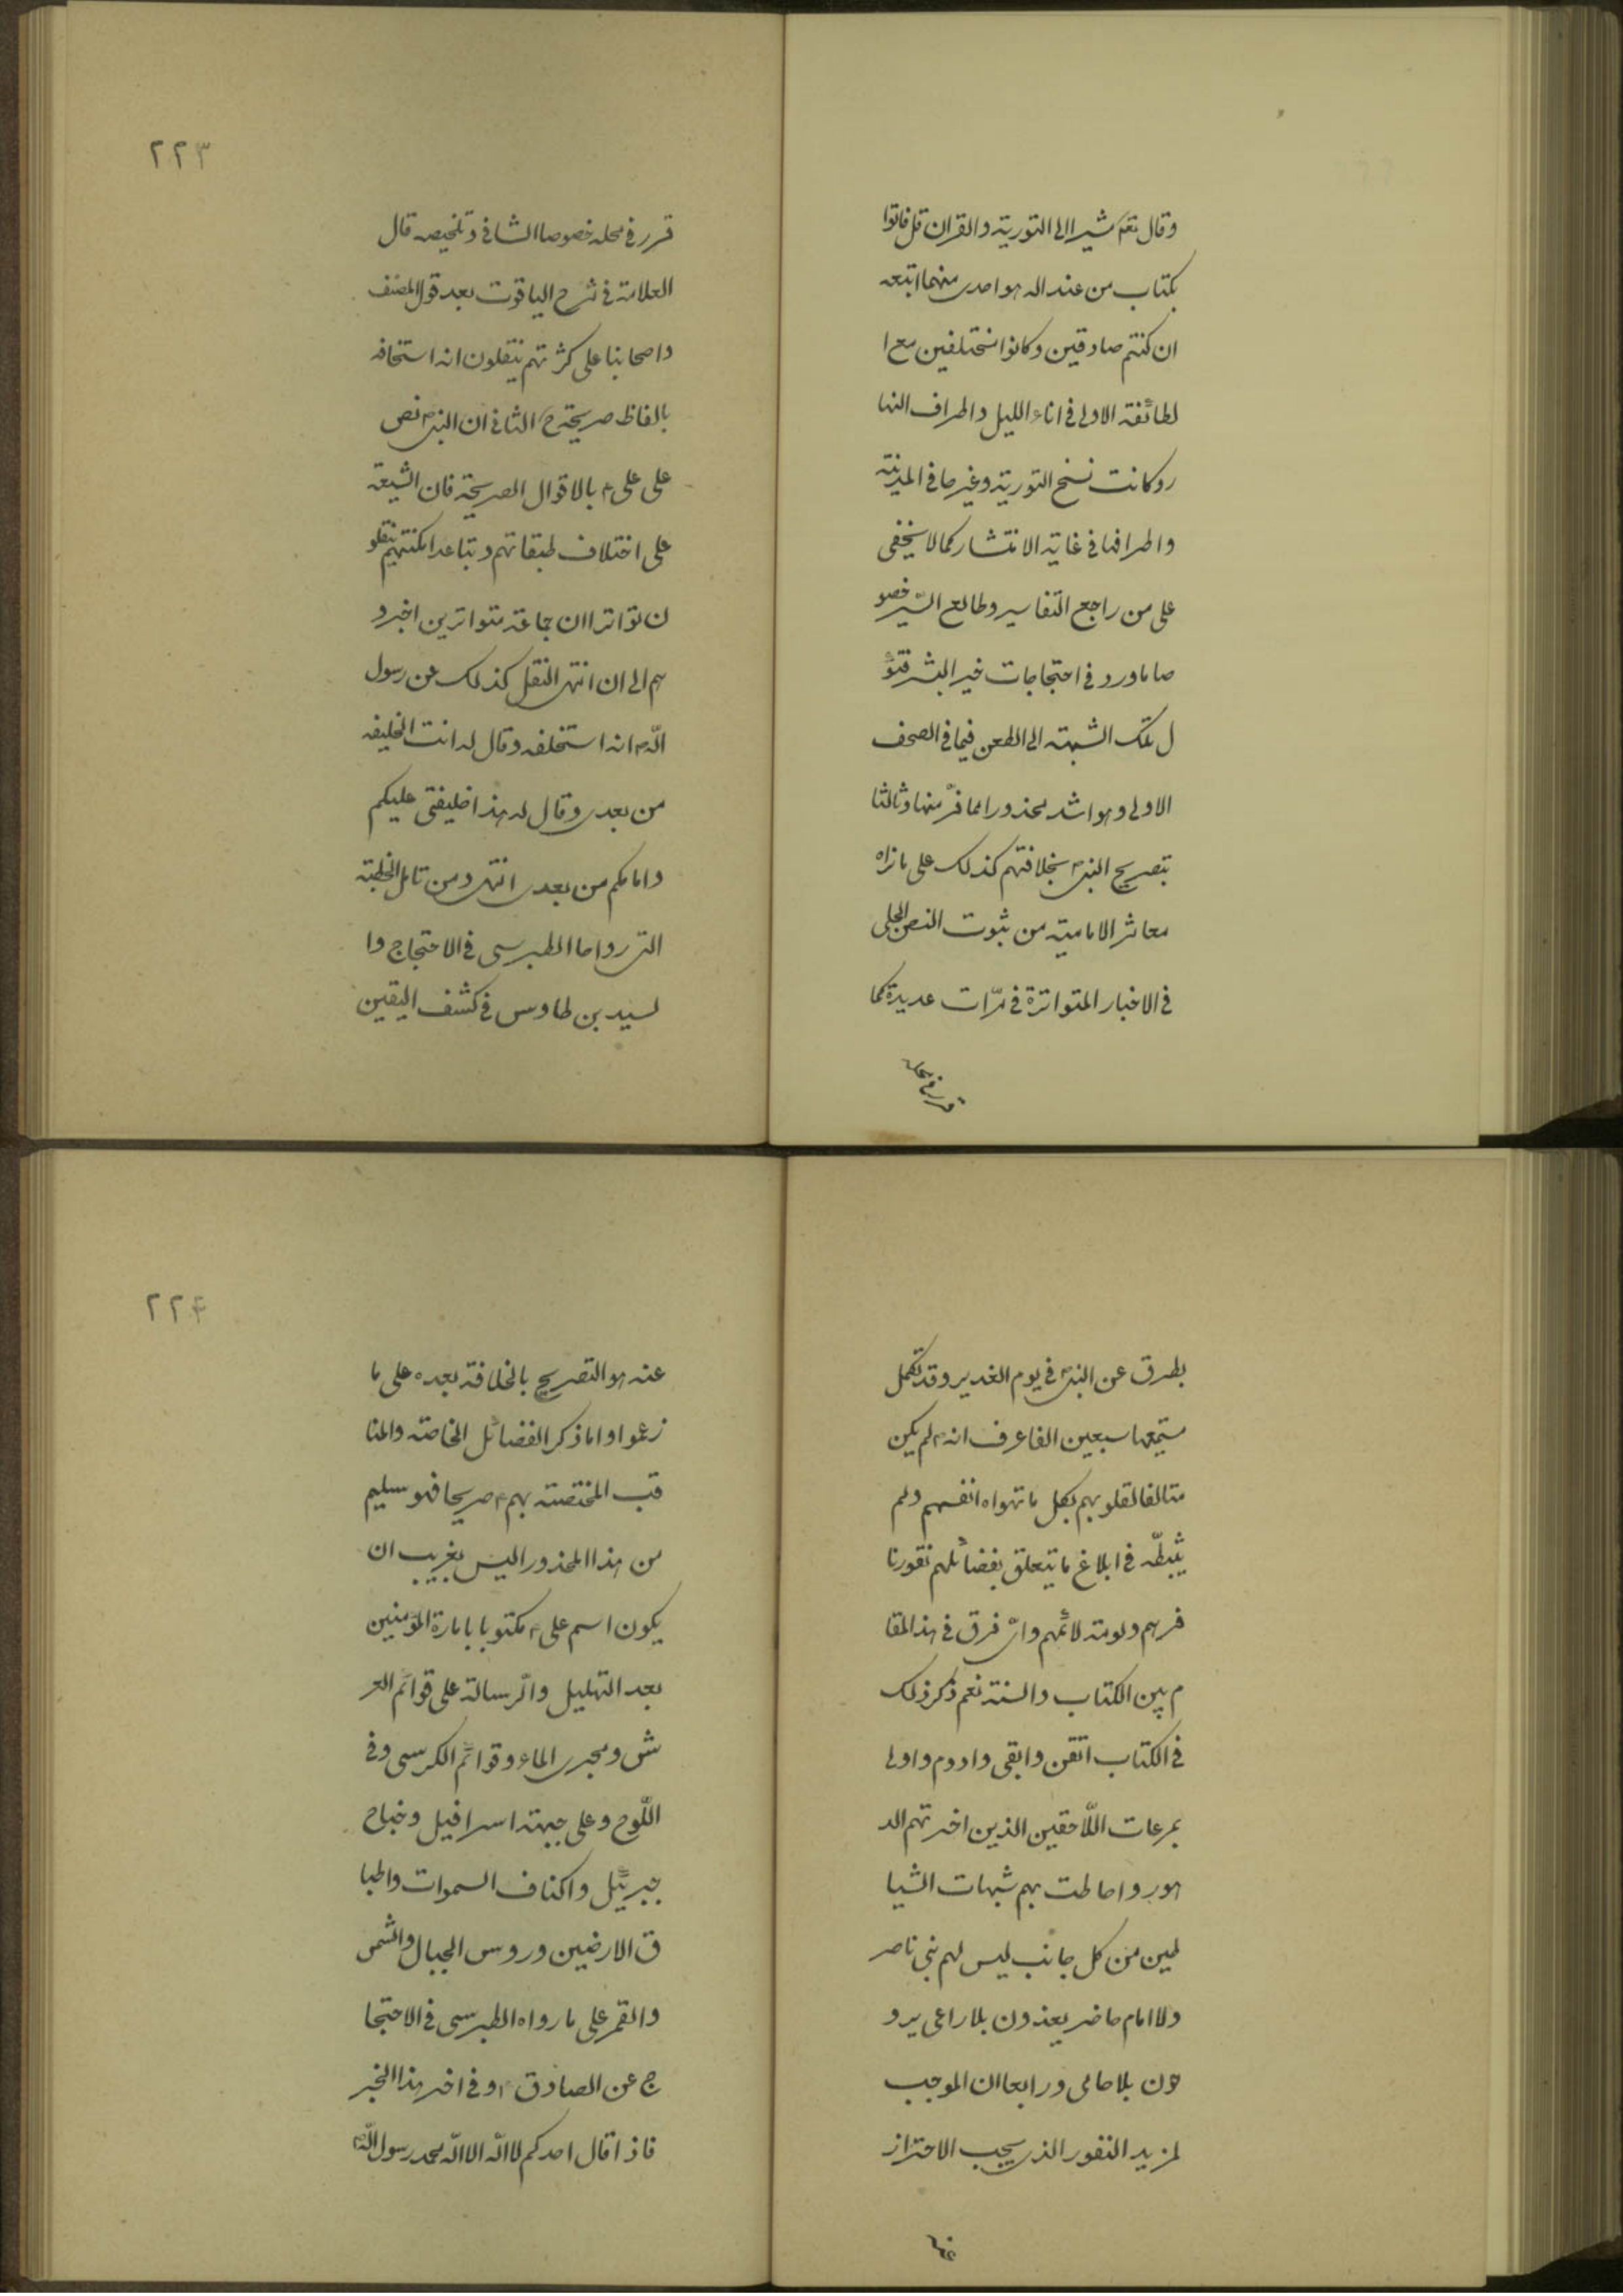 وقال تعم مشيرا الى التورية والقران قل فاتوا
بكتاب من عند الله هو اهدى منهما اتبعه
ان كنتم صادقين وكانوا مختلفين مع ا
لطائفة الاولى فى اناء الليل واطراف النها
ر وكانت نسخ التورية وغيرها فى المدينة
واطرافها فى غاية الانتشار كما لا يخفى
على من راجع التفاسير وطالع السّير خصو
صا ما ورد فى احتجاجات خير البشر فتؤ
ل تلك الشبهة الى الطعن فيما فى الصحف
الاولى وهو اشد محذورا مما فرّ منها وثالثا
بتصريح النبى ص بخلافتهم كذلك على ما نراه
معاشر الامامية من ثبوت النص الجلى
فى الاخبار المتواترة فى مرّات عديدة كما
قرر فى محله
٢٢٣
قرر فى محله خصوصا الشافى وتلخيصه قال
العلامة فى شرح الياقوت بعد قول المصنف
واصحابنا على كثرتهم ينقلون انه استخلفه
بالفاظ صريحة ح الثانى ان النبى ص نص
على على ع بالاقوال الصريحة فان الشيعة
على اختلاف طبقاتهم وتباعد امكنتهم ينقلو
ن تواترا ان جماعة متواترين اخبرو
هم الى ان انتهى النقل كذلك عن رسول
اللّه ص انه استخلفه وقال له انت الخليفه
من بعدى وقال له هذا خليفتى عليكم
وامامكم من بعدى انتهى ومن تامل الخطبة
التى رواها الطبرسى فى الاحتجاج وا
لسيد بن طاوس فى كشف اليقين
بطرق عن النبى ص فى يوم الغدير وقد تكمل
مستمعها سبعين الفا عرف انه ص لم يكن
متالفا لقلوبهم بكل ما تهواه انفسهم ولم
يثبطّه فى ابلاغ ما يتعلق بفضائلهم نفور نا
فرهم ولومة لائمهم واىّ فرق فى هذا المقا
م بين الكتاب والسنة نعم ذكر ذلك
فى الكتاب اتقن وابقى وادوم واولى
بمرعات اللّاحقين الذين اخرتهم الد
هور واحاطت بهم شبهات الشيا
طين من كل جانب ليس لهم نبى ناصر
ولا امام حاضر يغدون بلا راعى يرو
حون بلا حامى ورابعا ان الموجب
لمزيد النفور الذى يجب الاحتراز
عنه
٢٢٤
عنه هو التصريح بالخلافة بعده على ما
زعموا واما ذكر الفضائل الخاصة والمنا
قب المختصة بهم ع صريحا فهو سليم
من هذا المحذور اليس بغريب ان
يكون اسم على ع مكتوبا بامارة المؤمنين
بعد التهليل والرّسالة على قوائم العر
ش ومجرى الماء وقوائم الكرسى وفى
اللّوح وعلى جبهة اسرافيل وجناح
جبرئيل واكناف السموات واطبا
ق الارضين وروس الجبال والشمس
والقمر على ما رواه الطبرسى فى الاحتجا
ج عن الصادق ع وفى اخر هذا الخبر
فاذا قال احدكم لا اله الا اللّه محمد رسول اللّه